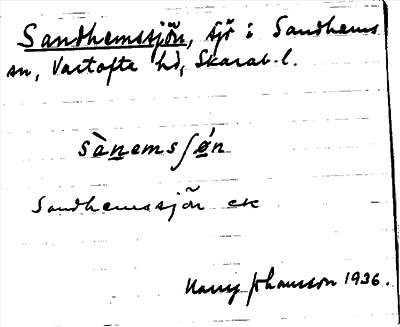 Sandhemssjön, sjö i Sandhems
sn, Vartofta hd, Skarab.l.
sànemsʃǿn
Sandhemssjön ek
Harry Johansson 1936.